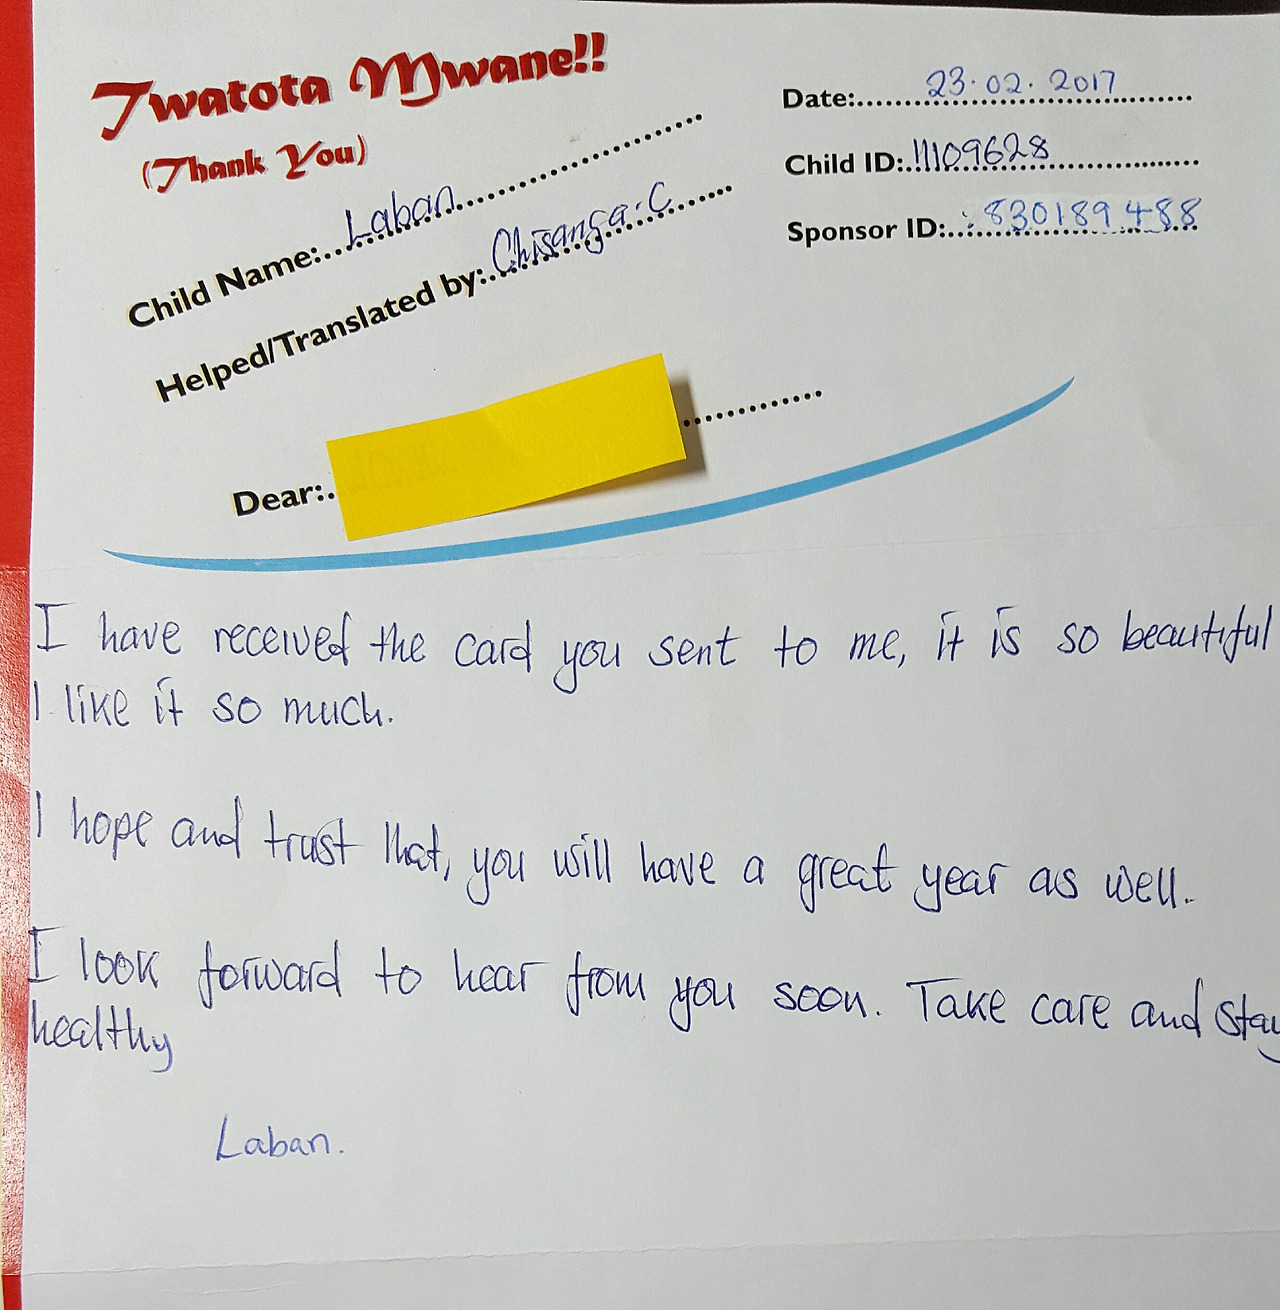 Twatota Mwane!!
(Thank You)
Date: 23.02.2017
Child ID: 11109628
Sponsor ID: 830189488
Child Name: Laban
Helped/Translated by: Chisanga.C
Dear:
I have received the card you sent to me, it is so beautiful
I like it so much.
I hope and trust that, you will have a great year as well.
I look forward to hear from you soon. Take care and stay
healthy
Laban.